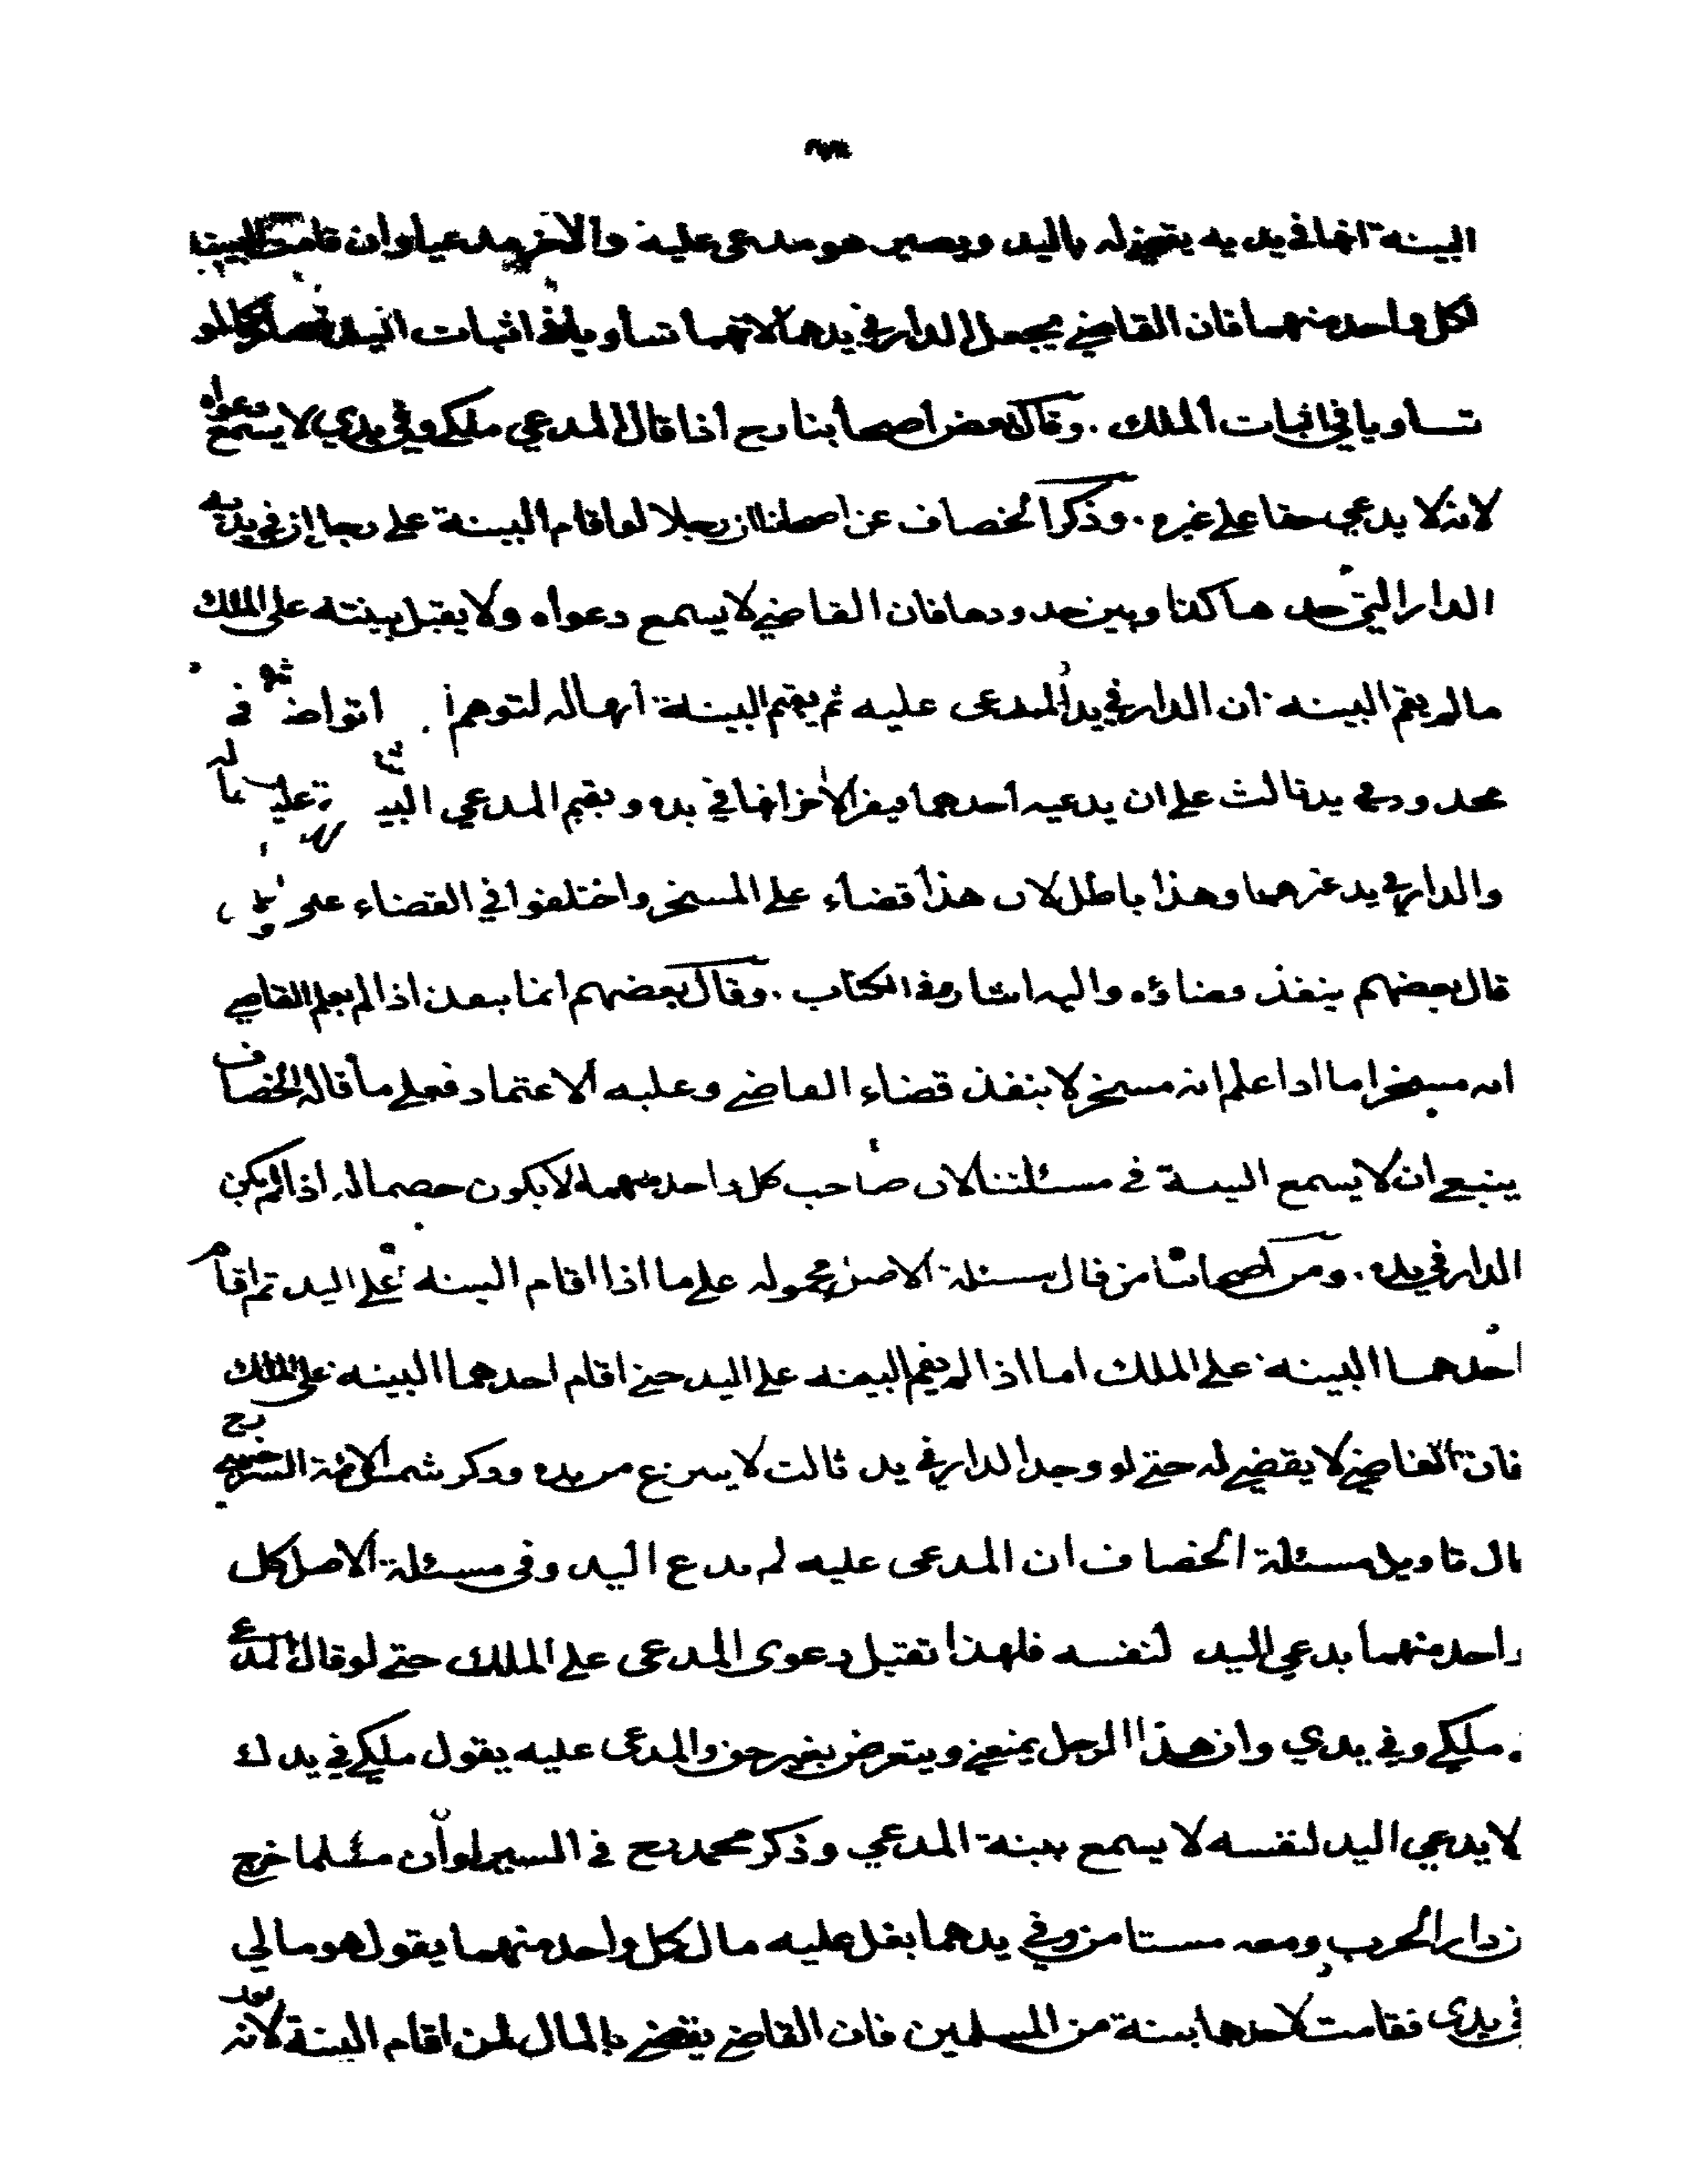 البينة انها في يديه يقضي له باليد ويصير هو مدعى عليه والاخر مدعيا وان قامت البينة
لكل واحد منهما فان القاضي يجعل الدار في يدهما لانهما تساويا في اثبات اليد فصار كما لو
تساويا في اثبات الملك . وقال بعض اصحابنا رح اذا قال المدعي ملكي وفي يدي لا يسمع دعواه
لانه لا يدعي حقا على غيره . وذكر الخصاف عن اصحابنا ان رجلا لو اقام البينة على رجل ان في يديه
الدار التي حدها كذا وبين حدودها فان القاضي لا يسمع دعواه ولا يقبل بينته على الملك
ما لم يقم البينه ان الدار في يد المدعى عليه ثم يقيم البينة انها له لتوهم انهما تواضعا في
محدود في يد ثالث على ان يدعيه احدهما ويقر الاخر انها في يده ويقيم المدعي البينة عليه
والدار في يد غيرهما وهذا باطل لان هذا قضاء على المسخر واختلفوا في القضاء على
قال بعضهم ينفذ قضاؤه واليه اشار في الكتاب . وقال بعضهم انما ينفذ اذا لم يعلم القاضي
انه مسخر اما اذا علم انه مسخر لا ينفذ قضاء القاضي وعليه الاعتماد فعلى ما قاله الخصاف
ينبغي ان لا يسمع البينة في مسئلتنا لان صاحب كل واحد منهما لا يكون خصما له اذا لم يكن
الدار في يده . ومن اصحابنا من قال مسئلة الاصل محموله على ما اذا اقام البينه على اليد ثم اقام
احدهما البينه على الملك اما اذا لم يقم البينه على اليد حتى اقام احدهما البينه على الملك
فان القاضي لا يقضي له حتى لو وجد الدار في يد ثالث لا ينزع من يده وذكر شمس الائمة السرخسي رح
قال تاويل مسئلة الخصاف ان المدعى عليه لم يدع اليد وفي مسئلة الاصل كل
واحد منهما يدعي اليد لنفسه فلهذا تقبل دعوى المدعى على الملك حتى لو قال المدعي
ملكي وفي يدي وان هذا الرجل يمنعني ويتعرض بغير حق والمدعى عليه يقول ملكي في يدك
لا يدعي اليد لنفسه لا يسمع بينة المدعي وذكر محمد رح في السير لو ان مسلما خرج
من دار الحرب ومعه مستامن وفي يدهما بغل عليه مال كل واحد منهما يقول هو مالي
في يدى فقامت لاحدهما بينة من المسلمين فان القاضي يقضي بالمال لمن اقام البينة لانه نور